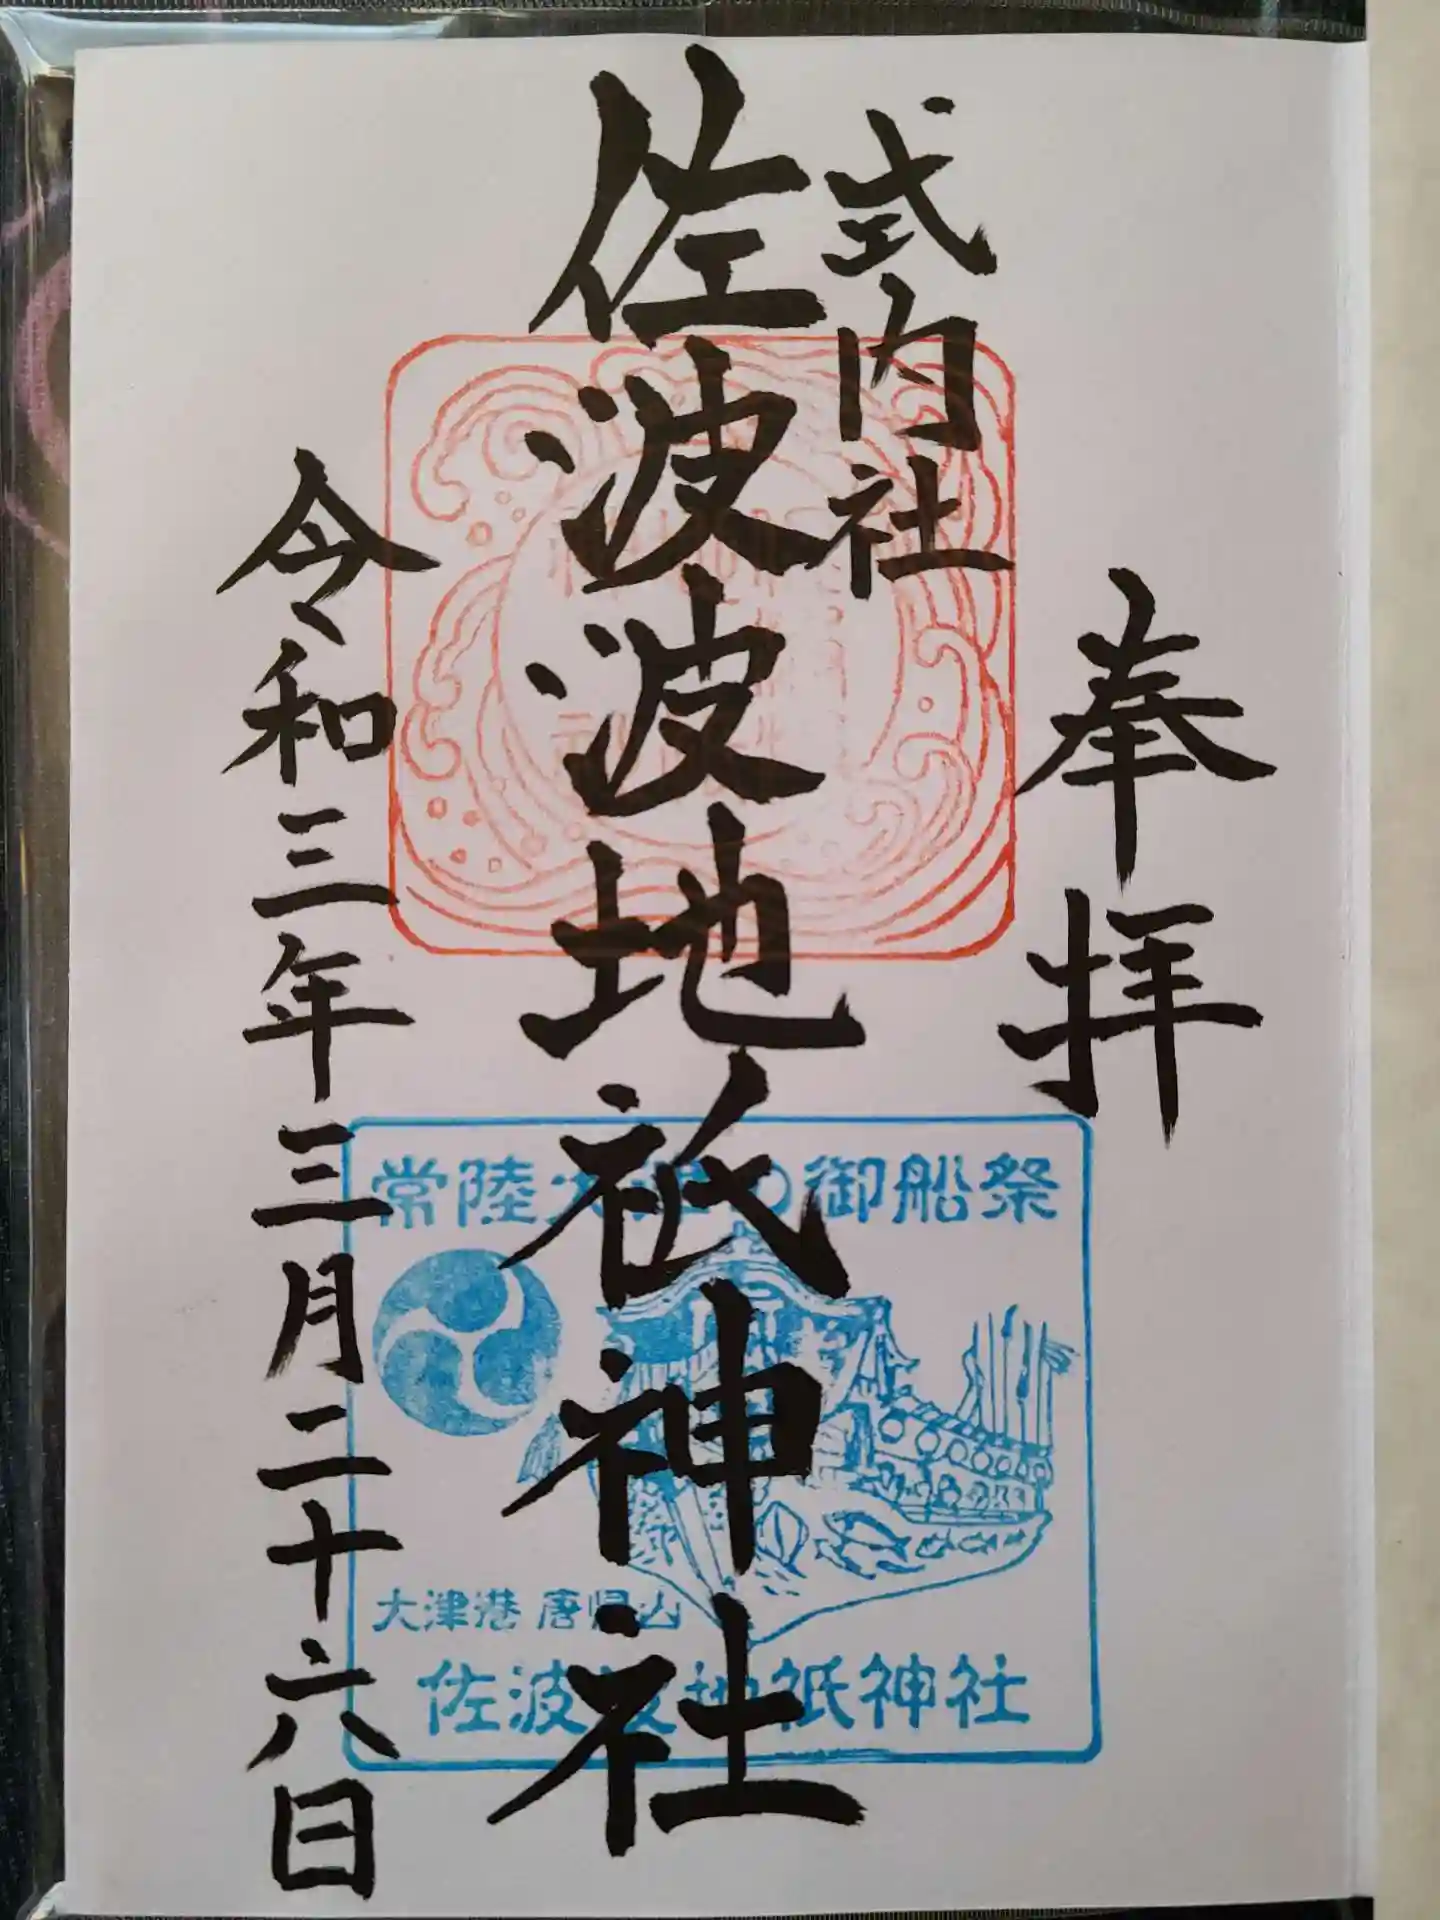 奉拝
式内社
佐波波地祇神社
令和三年三月二十六日
常陸大津の御船祭
大津港 唐帰山
佐波波地祇神社